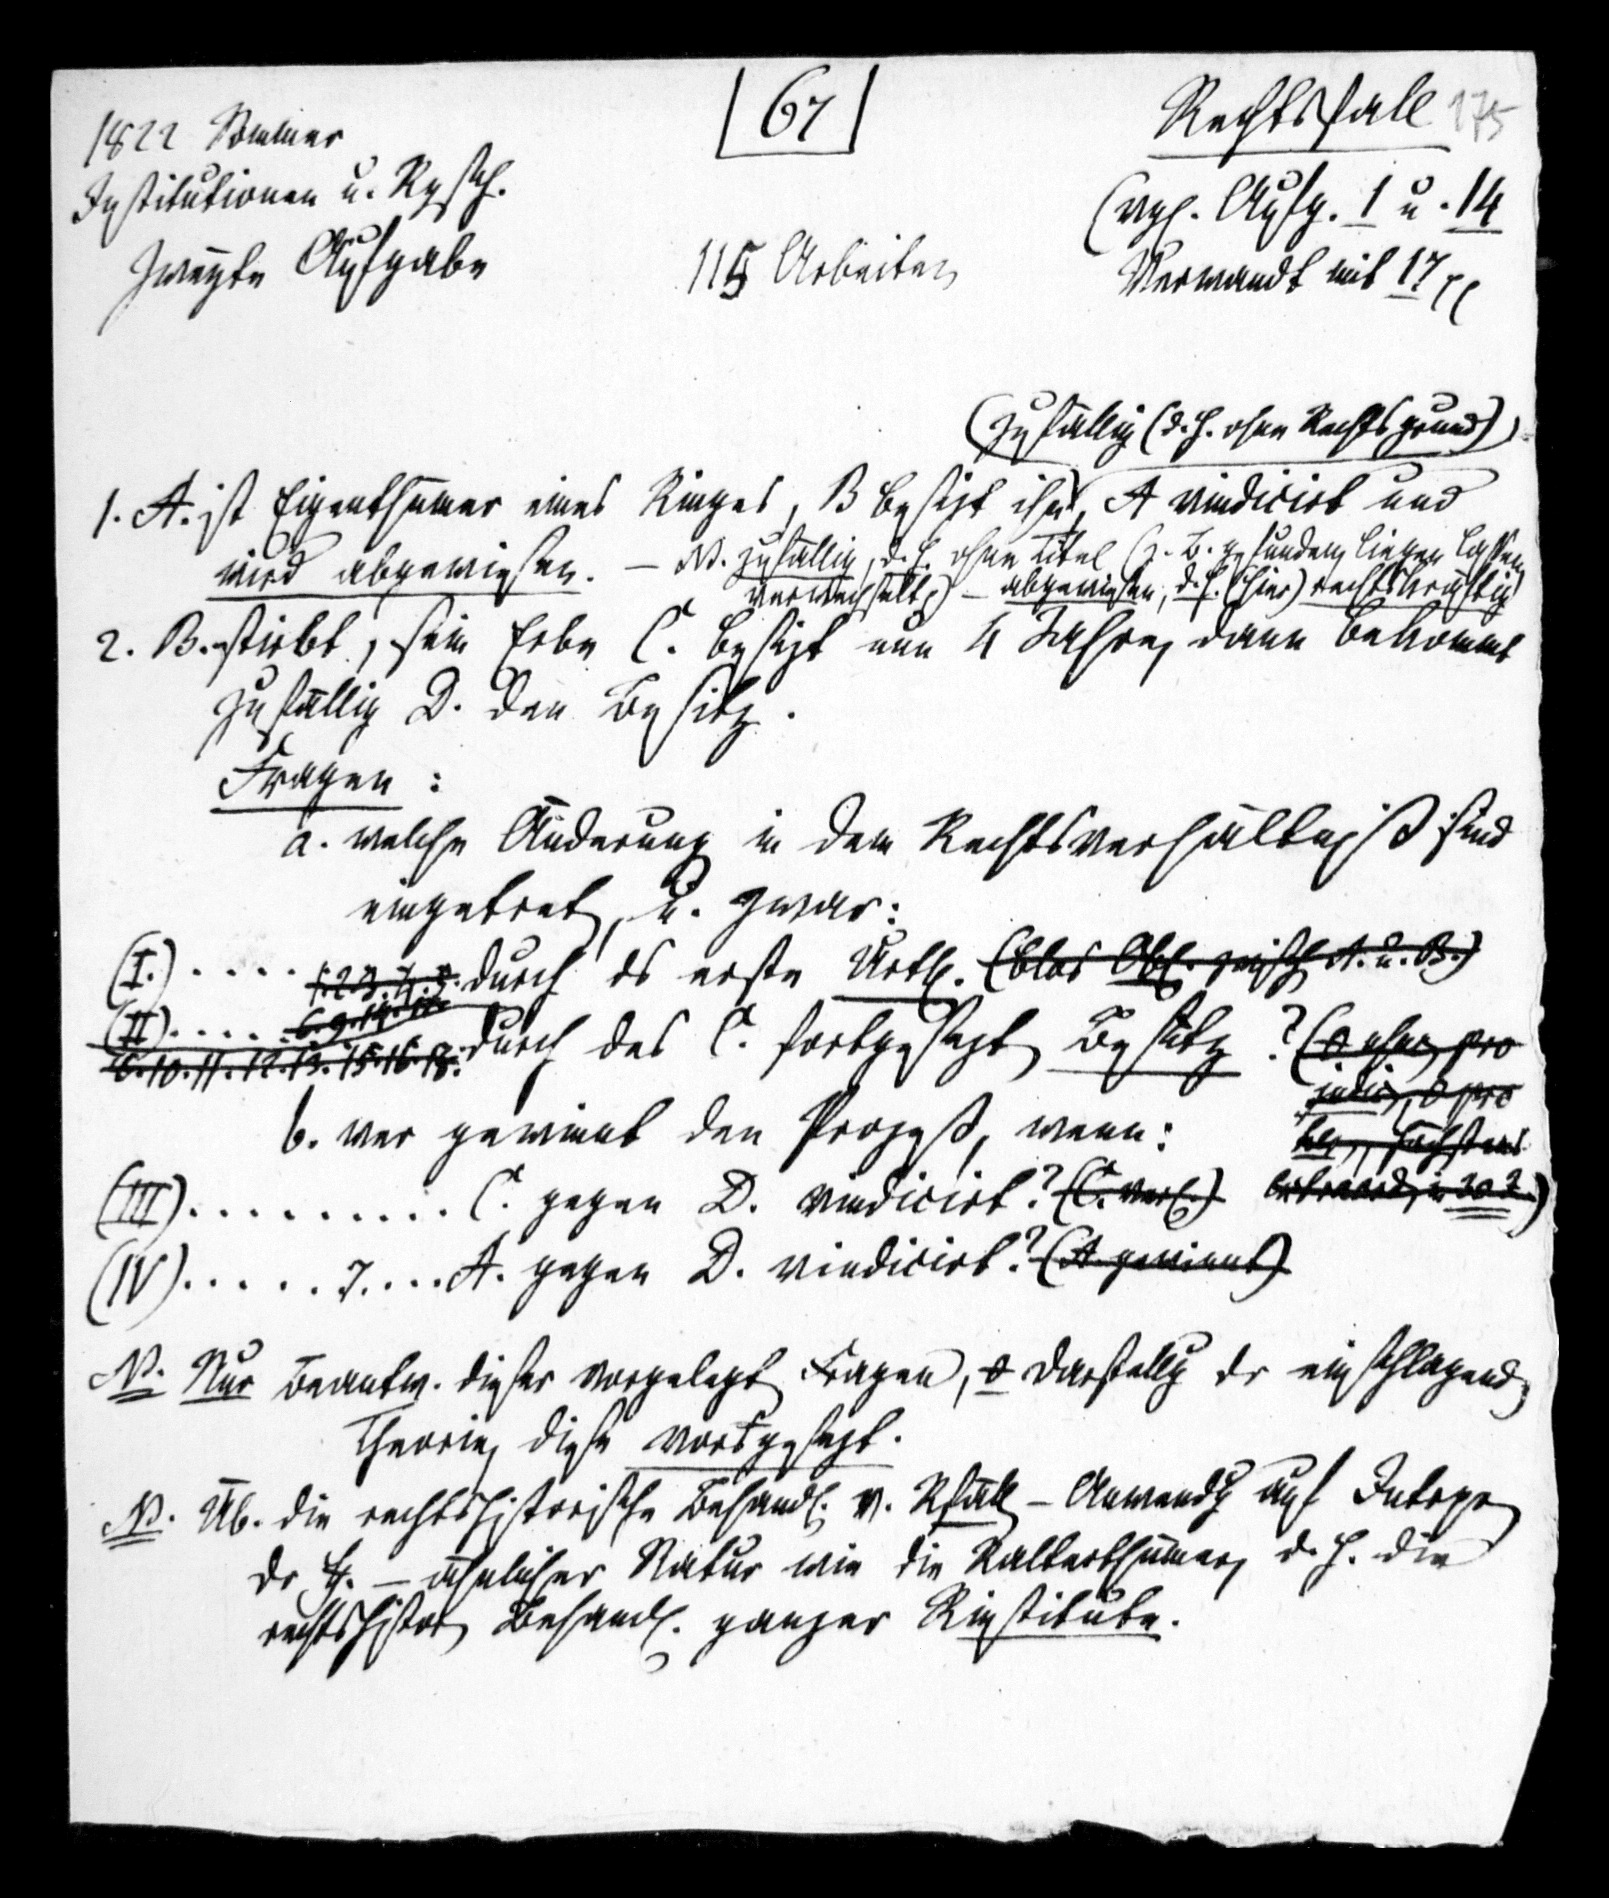 1822 Sommer
Institutionen u. Rgsch.
Zweyte Aufgabe
67
115 Arbeiten
Rechtsfall 175
(vgl. Aufg. 1 u. 14
Verwandt mit 17
(zufällig (d. h. ohne Rechtsgrund))
1. A. ist Eigenthümer eines Ringes, B besizt ihn, A vindicirt und
wird abgewiesen. — N. zufällig, d. h. ohne Titel (z. B. gefunden, liegen lassen,
verwechselt) — abgewiesen, d. h. (hier) rechtskräftig
2. B. stirbt, sein Erbe C. besizt nun 4 Jahre, dann bekommt
zufällig D. den Besitz.
Fragen:
a. welche Änderung in dem Rechtsverhältniß sind
eingetret, u. zwar:
(I.) . . . . 1.2.3. durch ds erste Urth. (blos Obl. zwisch A. u. B.)
(II) . . . . 6.9.14. durch des C. fortgesezt Besitz? pro
6.10.11.12.13.15.16.18.
b. wer gewinnt den Prozeß, wenn:
(III) . . . . . . . . . . C. gegen D. vindicirt? (C. verl.)
(IV) . . . . . 7. . . . A. gegen D. vindicirt? (A. gewinnt)
N. Nur Beantw. dieser vorgelegt Fragen, Darstellg dr einschlagend
Theorie, diese vorausgesezt.
N. Üb. die rechtshistorische Behandl. v. Rfäll – Anwendg auf Interpr
dr – ähnlicher Natur wie die Ralterthümer, d. h. die
rechtshistor Behandl. ganzer Rinstitute.